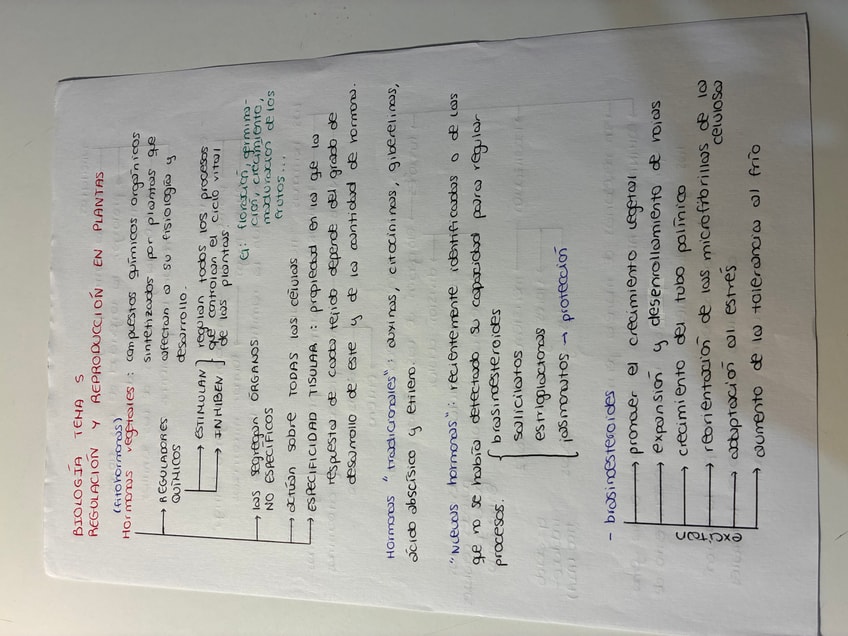 BIOLOGÍA TEMA 5
REGULACIÓN Y REPRODUCCIÓN EN PLANTAS
(fitohormonas)
Hormonas vegetales : compuestos químicos orgánicos
sintetizados por plantas que
afectan a su fisiología y
desarrollo.
→ REGULADORES
QUÍMICOS
→ ESTIMULAN
→ INHIBEN
regulan todos los procesos
que controlan el ciclo vital
de las plantas
Ej: floración, germina-
ción, crecimiento,
maduración de los
frutos...
→ las segregan ÓRGANOS
NO ESPECÍFICOS
→ actúan sobre TODAS las células
→ ESPECIFICIDAD TISULAR : propiedad en la que la
respuesta de cada tejido depende del grado de
desarrollo de este y de la cantidad de hormona.
Hormonas "tradicionales" : auxinas, citocininas, giberelinas,
ácido abscísico y etileno.
"Nuevas hormonas" : recientemente identificadas o de las
que no se había detectado su capacidad para regular
procesos.
brasinoesteroides
salicilatos
estrigolactonas
jasmonatos → protección
- brasinoesteroides
→ promover el crecimiento vegetal
→ expansión y desenrollamiento de hojas
→ crecimiento del tubo polínico
→ reorientación de las microfibrillas de la
celulosa
→ adaptación al estrés
→ aumento de la tolerancia al frío